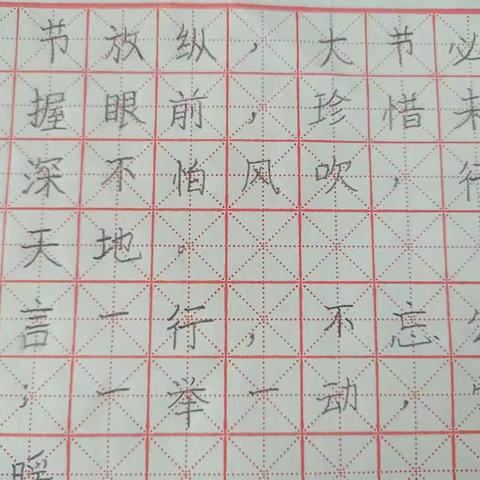 节放纵，大节必
握眼前，珍惜未
深不怕风吹，行
天地。
言一行，不忘公
；一举一动，
暖